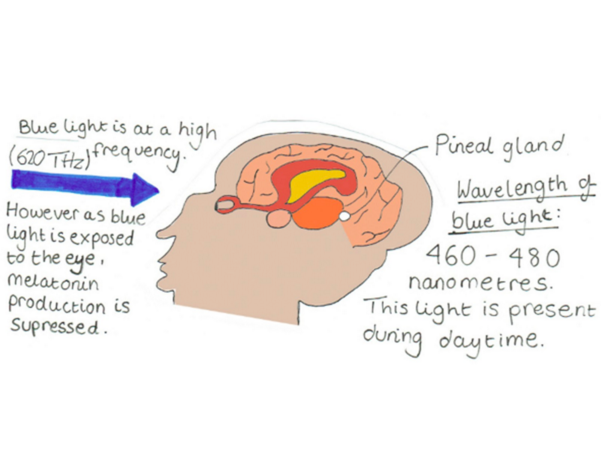 Blue light is at a high
(620 THz) frequency.
However as blue
light is exposed
to the eye,
melatonin
production is
Supressed.
Pineal gland
Wavelength of
blue light:
460 - 480
nanometres.
This light is present
during daytime.